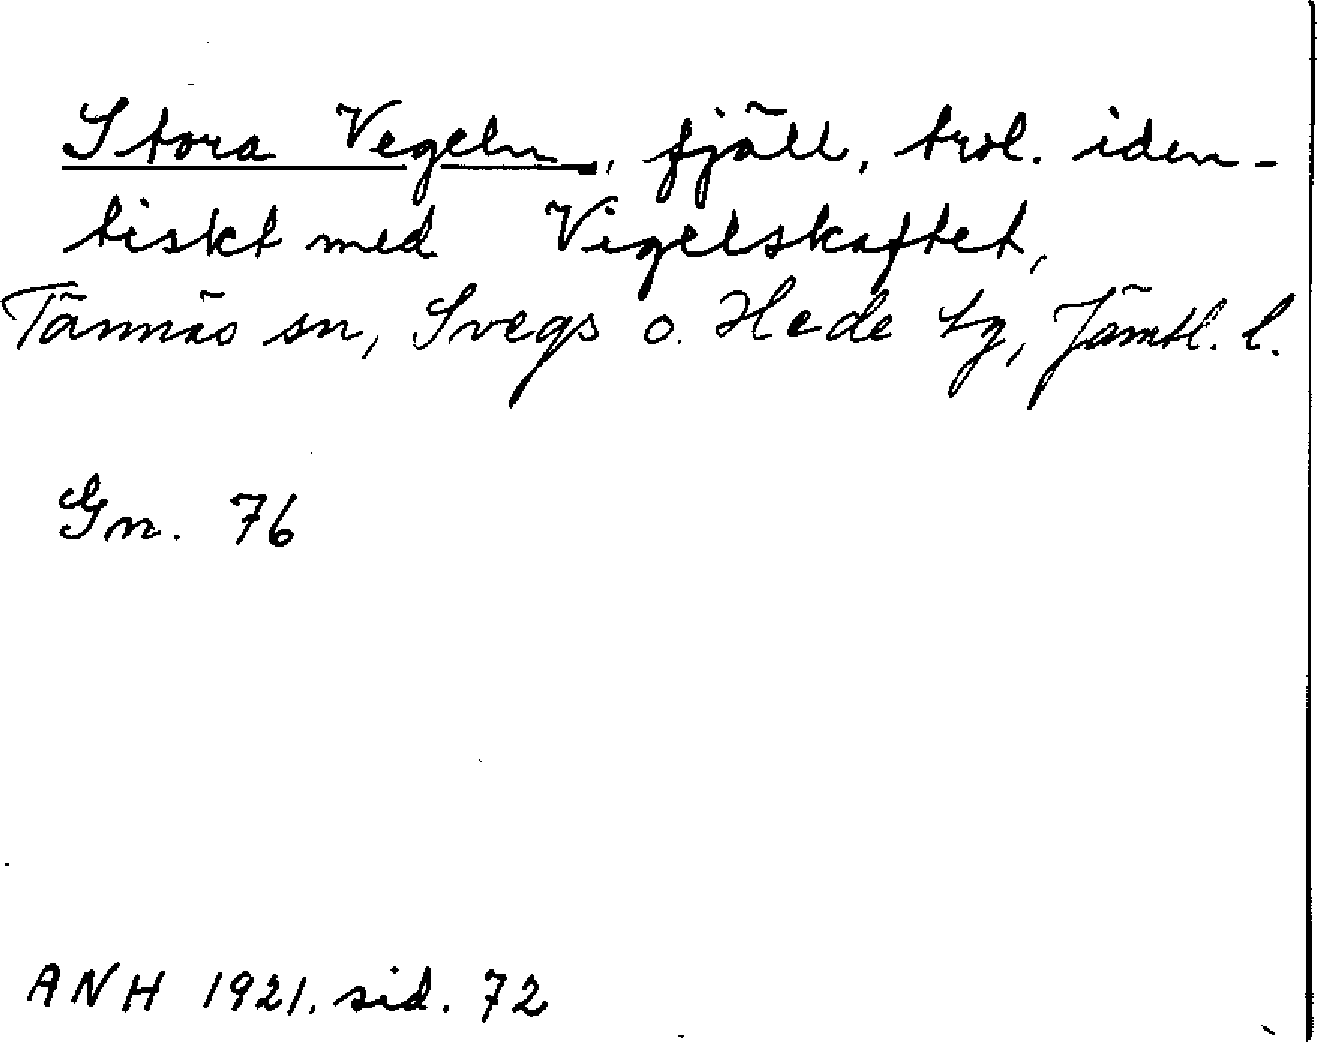 Stora Vegeln, fjäll, trol. iden-
tiskt med Vigelskaftet,
Tännäs sn, Svegs o. Hede tg, Jämtl. l.
Gn. 76
ANH 1921. sid. 72